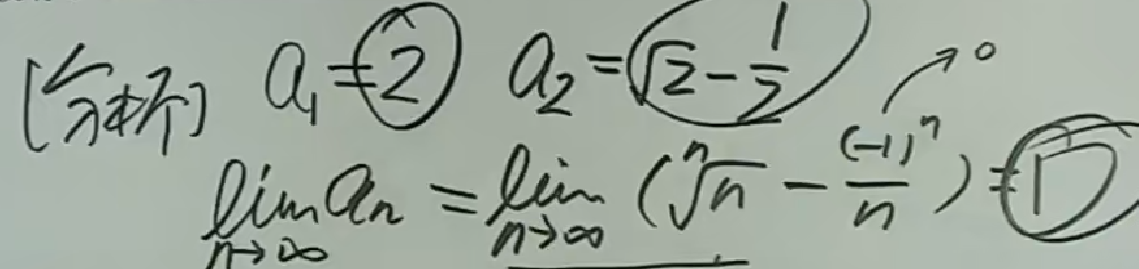 [分析] a₁=2 a₂=√2-1/2 →0
lim_{n→∞} aₙ = lim_{n→∞} (ⁿ√n - (-1)ⁿ/n) = 1